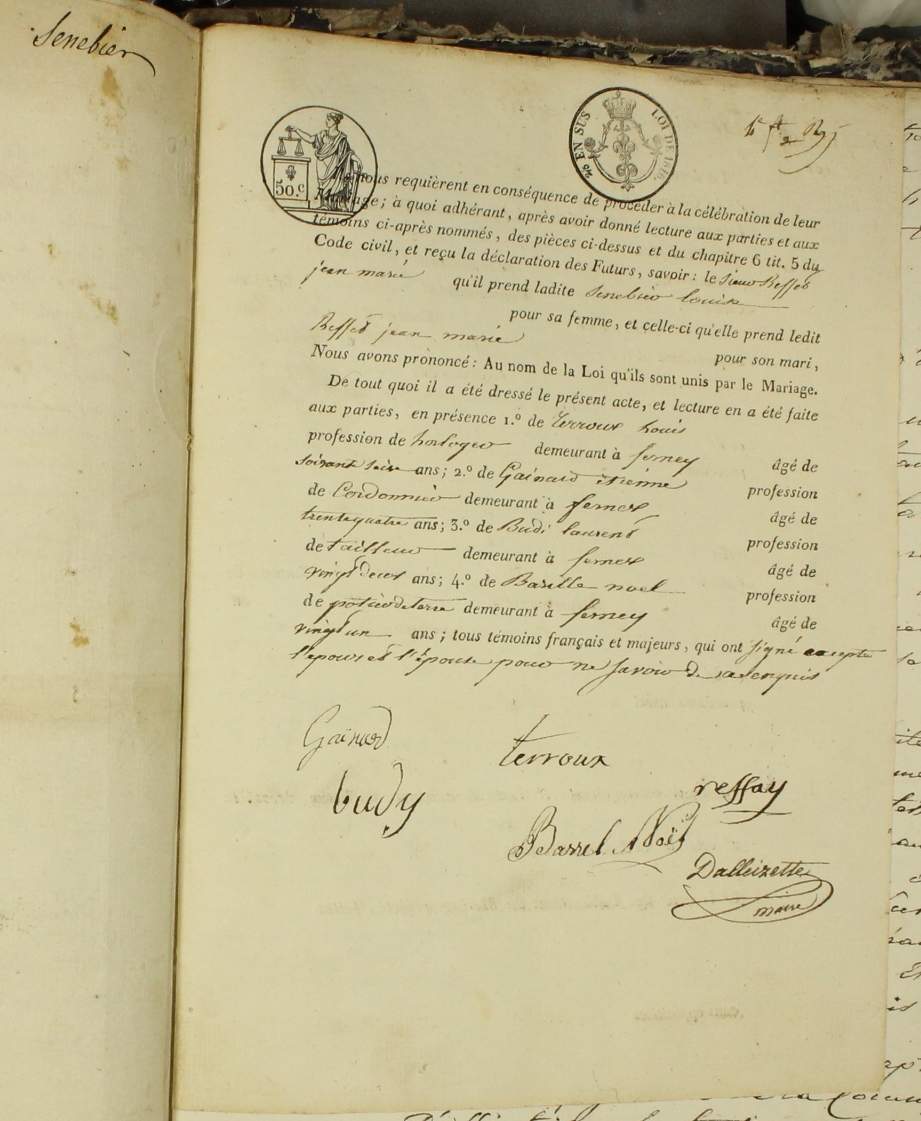 Senebier
50.c
EN SUS
LOI DE 1816.
nous requièrent en conséquence de procéder à la célébration de leur
Mariage; à quoi adhérant, après avoir donné lecture aux parties et aux
témoins ci-après nommés, des pièces ci-dessus et du chapitre 6 tit. 5 du
Code civil, et reçu la déclaration des Futurs, savoir: le Sieur Reffet
jean marie qu'il prend ladite Senebier louise
pour sa femme, et celle-ci qu'elle prend ledit
Reffet jean marie pour son mari,
Nous avons prononcé: Au nom de la Loi qu'ils sont unis par le Mariage.
De tout quoi il a été dressé le présent acte, et lecture en a été faite
aux parties, en présence 1.º de terroux Louis
profession de horloger demeurant à ferney âgé de
soixante seize ans; 2.º de Gainard étienne profession
de Cordonnier demeurant à fernex âgé de
trente quatre ans; 3.º de Budi laurent profession
de tailleur demeurant à fernex âgé de
vingt deux ans; 4.º de Barille noel profession
de potier de terre demeurant à ferney âgé de
vingt un ans; tous témoins français et majeurs, qui ont signé excepte
l'epoux et l'épouse pour ne savoir de ce enquis
Gainard
terroux
budy
reffay
Barrel Noël
Dalleizette
maire